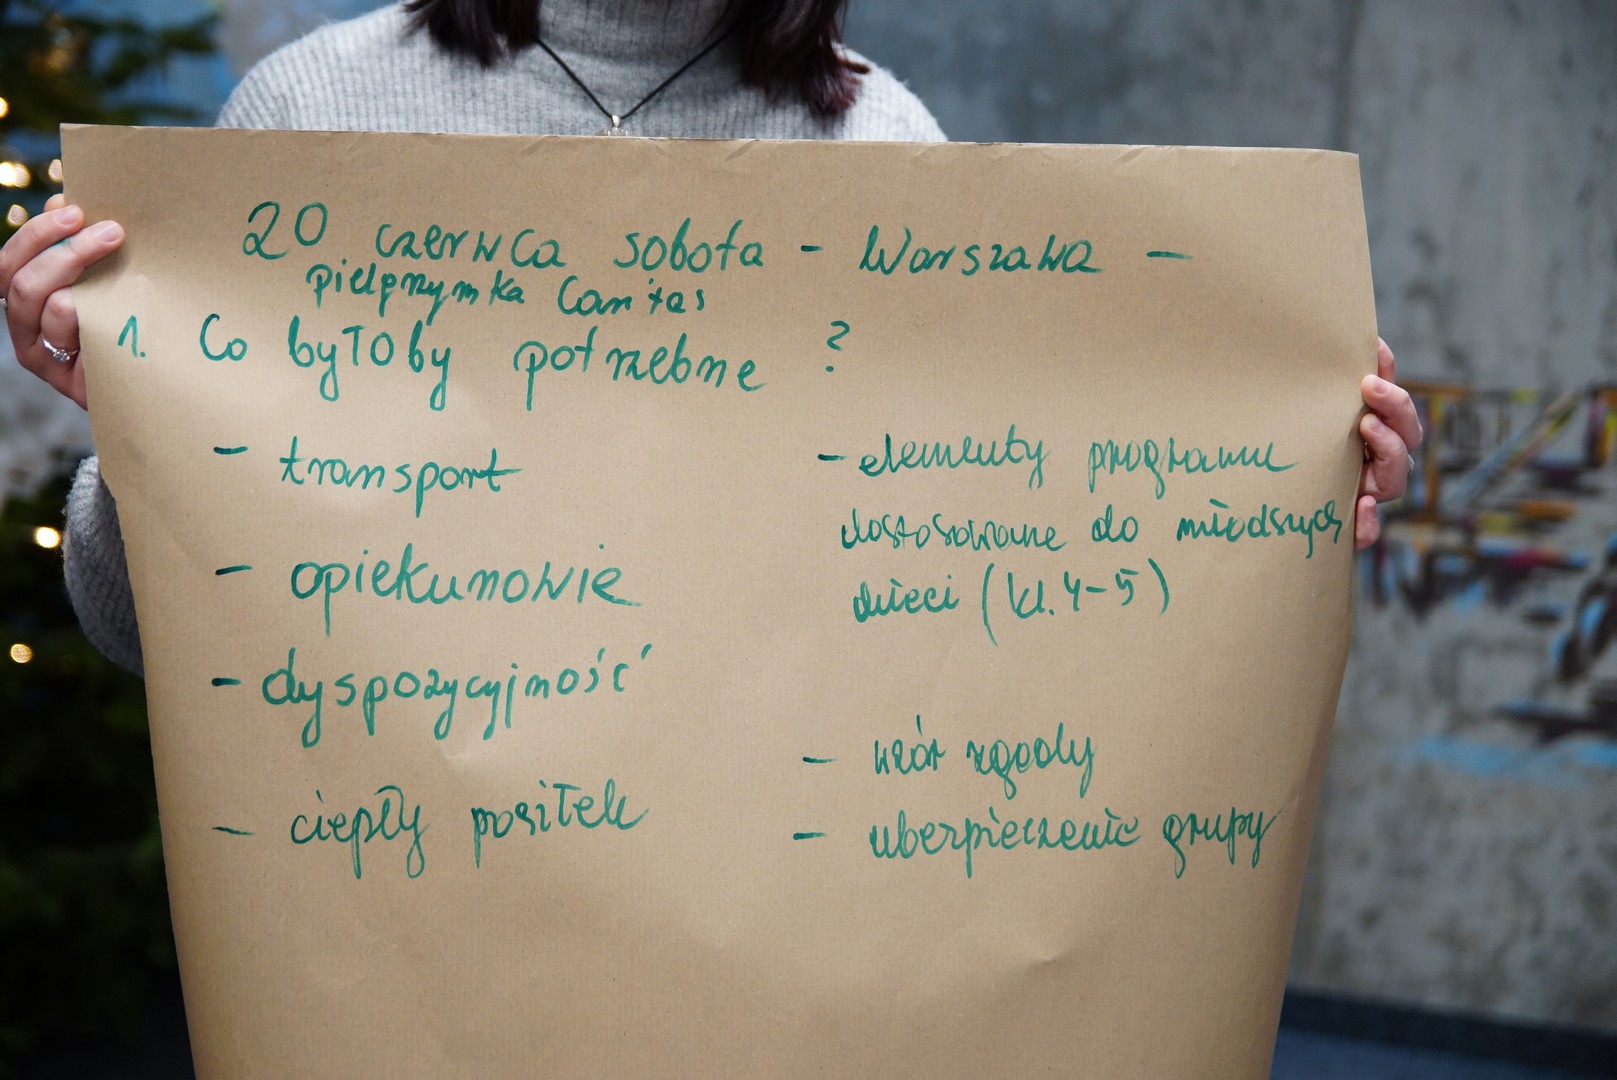 20 czerwca sobota - Warszawa -
pielgrzymka Caritas
1. Co byłoby potrzebne ?
- transport
- opiekunowie
- dyspozycyjność
- ciepły posiłek
- elementy programu
dostosowane do młodszych
dzieci (kl. 4-5)
- wzór zgody
- ubezpieczenie grupy